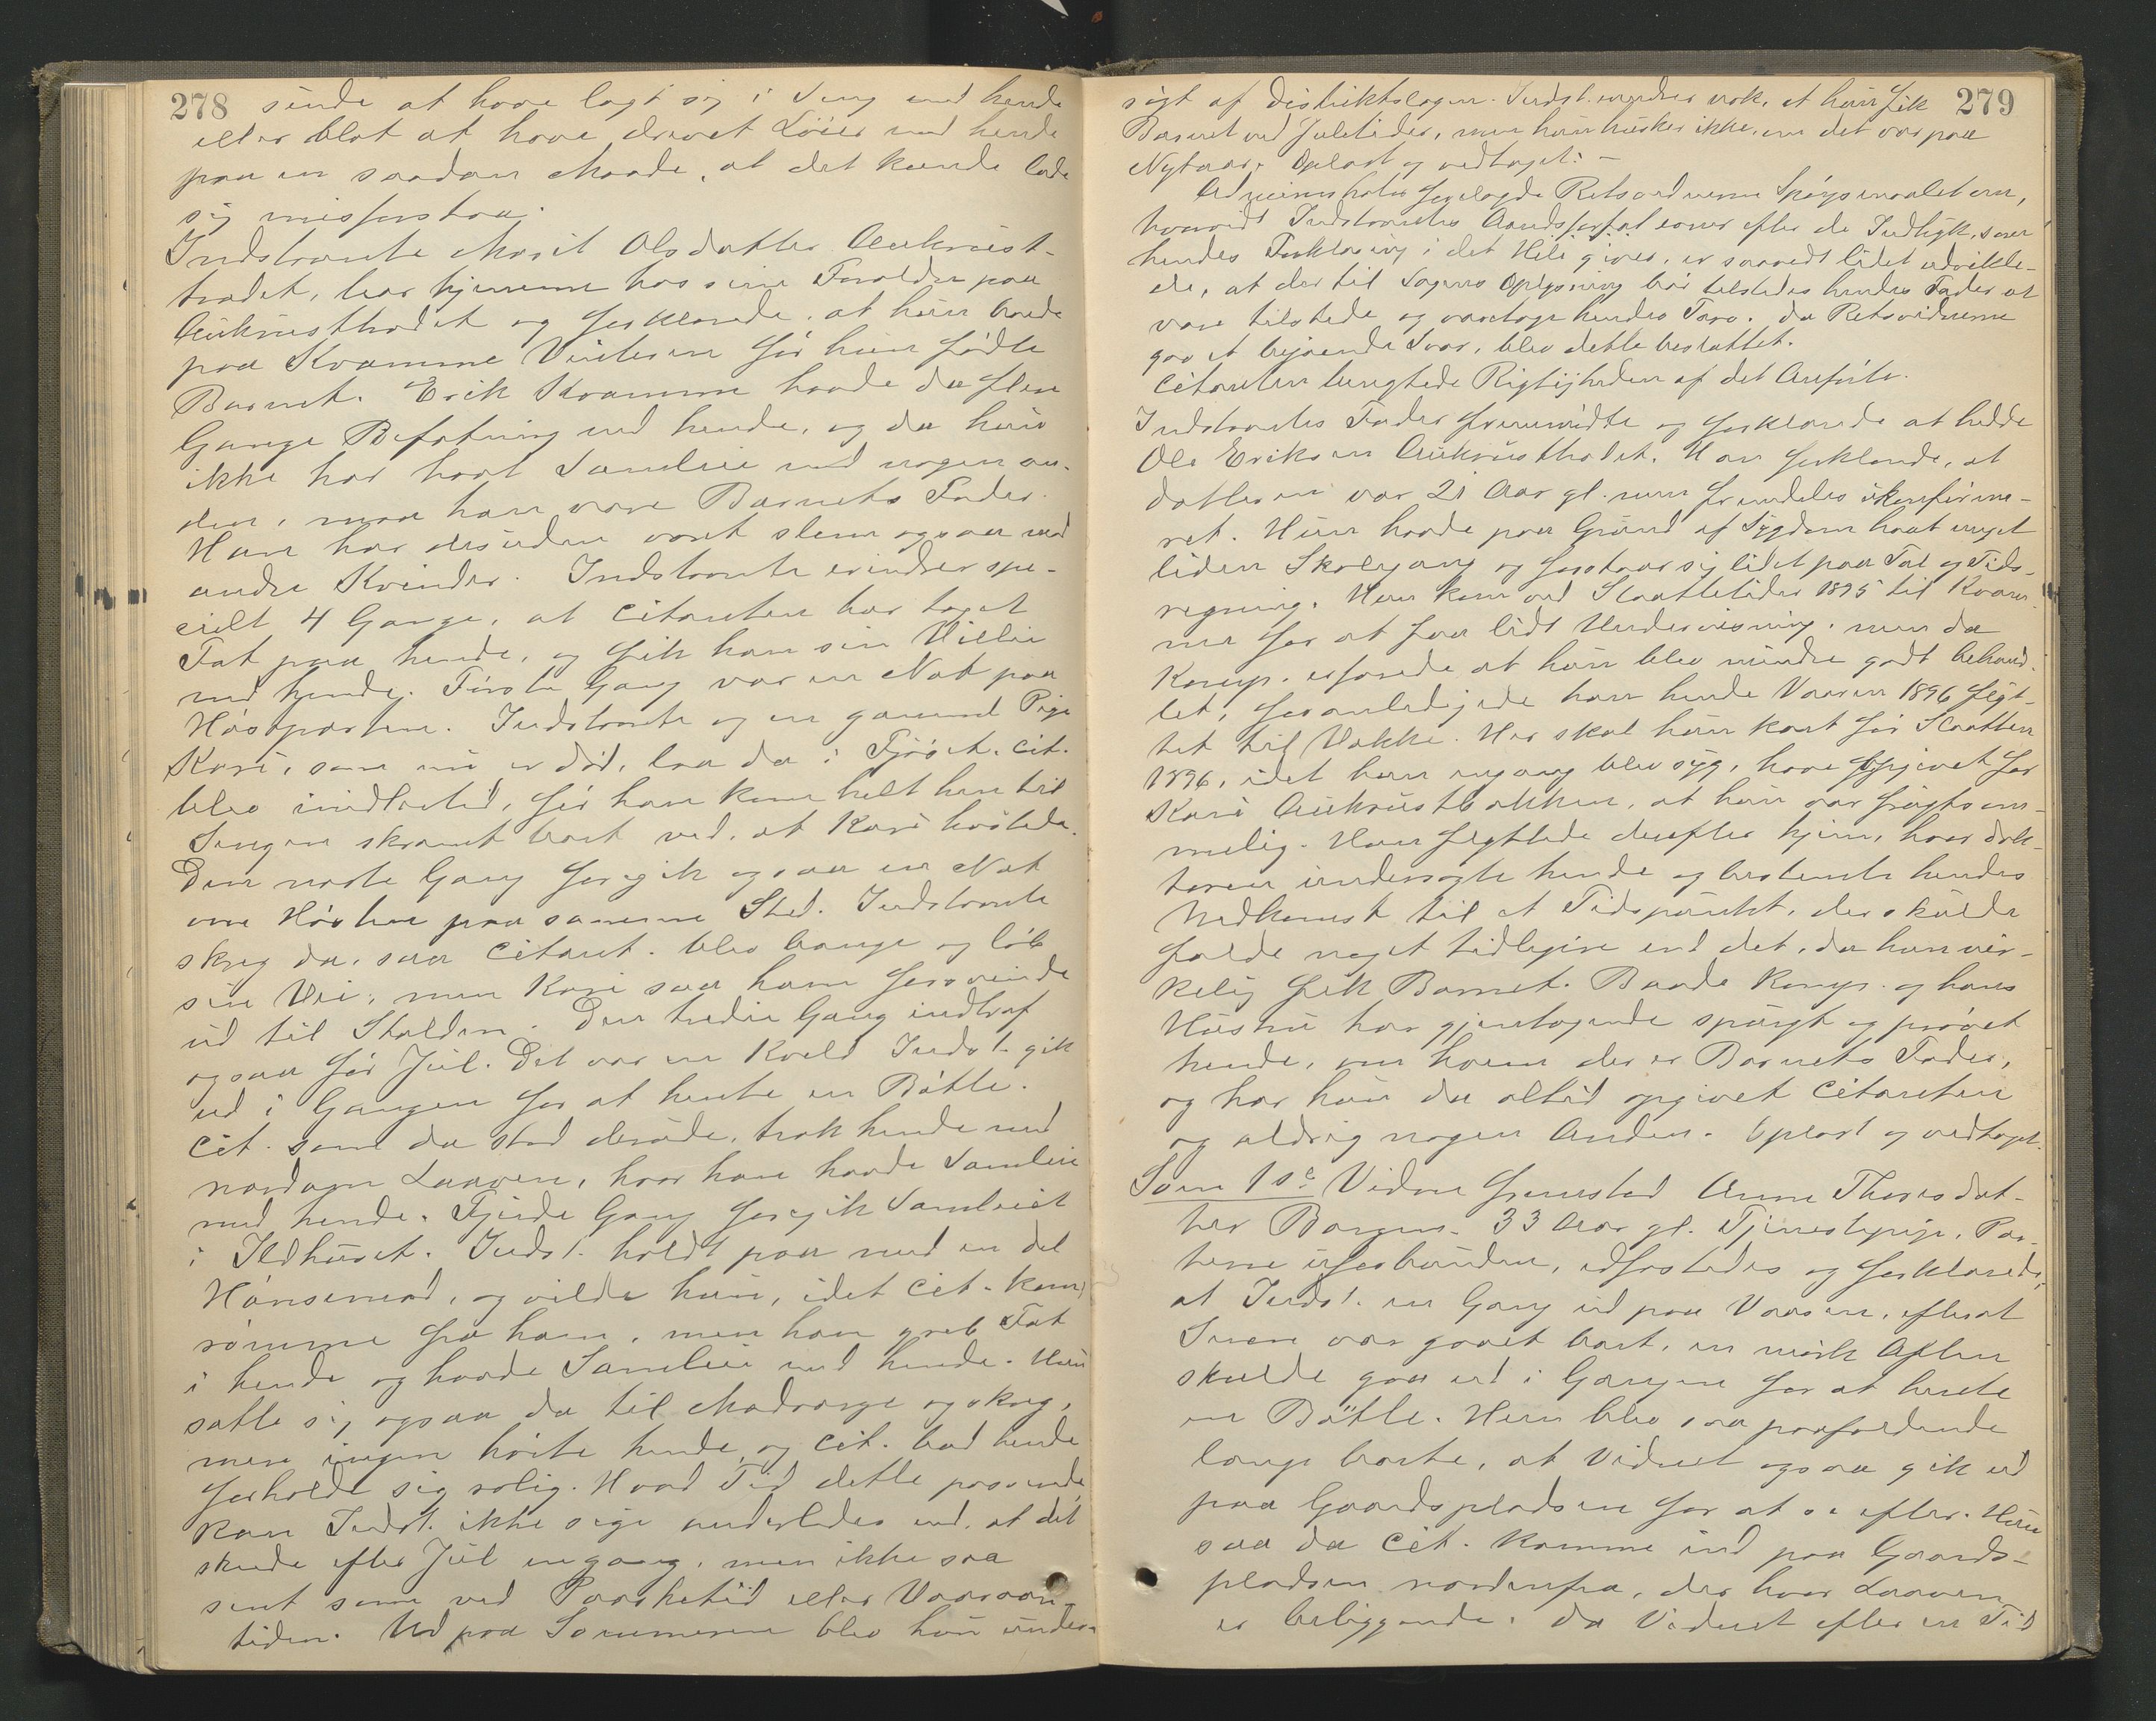 278
sinde at have lagt sig i Seng med hende
eller blot at have drevet Löier med hende
paa en saadan Maade, at det kunde lade
sig misforstaa.
Indstevnte Marit Olsdatter Aukrust-
trodet, bor hjemme hos sine Foreldre paa
Aukrusttrodet og forklarede, at hun boede
paa Kvamme Vinteren för hun födte
Barnet. Erik Kvamme havde da flere
Gange Befatning med hende, og da hun
ikke har havt Samleie med nogen an-
den, maa han være Barnets Fader.
Han har desuden været slem ogsaa med
andre Kvinder. Indstevnte erindrer spe-
cielt 4 Gange, at Citanten har taget
Fat paa hende, og fik han sin Villie
med hende. Förste Gang var en Nat paa
Höstparten. Indstevnte og en gammel Pige
Kari, som nu er död, laa da i Fjöset. Cit.
blev imidlertid, för han kom helt hen til
Sengen skræmt bort ved, at Kari hostede.
Den næste Gang foregik ogsaa en Nat
om Hösten paa samme Sted. Indstevnte
skreg da, saa Citant. blev bange og löb
sin Vei, men Kari saa ham forsvinde
ud til Stalden. Den tredie Gang indtraf
ogsaa för Jul. Det var en Kveld Indst. gik
ud i Gangen for at hente en Bötte.
Cit. som da stod derude, trak hende med
nordom Laaven, hvor han havde Samleie
med hende. Fjerde Gang foregik Samleiet
i Ildhuset. Indst. holdt paa med en del
Hönsemad, og vilde hun, idet Cit. kom,
römme fra ham, men han greb Fat
i hende og havde Samleie med hende. Hun
satte sig ogsaa da til Modværge og skreg,
men ingen hörte hende, og Cit. bad hende
forholde sig rolig. Hvad Tid dette passerede,
kan Indst. ikke sige anderledes end, at det
skede efter Jul engang, men ikke saa
sent som ved Paasketid eller Vaaraan-
tiden. Ud paa Sommeren blev hun under-
279
sögt af Distriktslægen. Indst. erindrer nok, at hun fik
Barnet ved Juletider, men hun husker ikke, om det var paa
Nytaar. Oplæst og vedtaget. -
Administrator forelagde Retsvidnerne Spörgsmaalet om,
hvorvidt Indstevntes Aandsforfatning efter de Indtryk, som
hendes Forklaring i det Hele giver, er saavidt lidet udvikle-
de, at der til Sagens Oplysning bör tilstedes hendes Fader at
være tilstede og varetage hendes Tarv. Da Retsvidnerne
gav et bejaende Svar, blev dette besluttet.
Citanten benegtede Rigtigheden af det Anförte.
Indstevntes Fader fremmödte og forklarede at hedde
Ole Eriksen Aukrusttrodet. Han forklarede, at
datteren var 21 Aar gl. men fremdeles ukonfirme-
ret. Hun havde paa Grund af Sygdom havt meget
liden Skolegang og forstaar sig lidet paa Tal og Tids-
regning. Hun kom ved Slaattetider 1895 til Kvam-
me for at faa lidt Undervisning, men da
Komp. erfarede at hun blev mindre godt behand-
let, foranledigede han hende Vaaren 1896 flyt-
tet til Bakke. Her skal hun kort för Slaatten
1896, idet hun engang blev syg, have opgivet for
Kari Aukrustbakken, at hun var frugtsom-
melig. Hun flyttede derefter hjem, hvor dok-
toren undersögte hende og bestemte hendes
Nedkomst til et Tidspunkt, der skulde
falde noget tidligere end det, da hun vir-
kelig fik Barnet. Baade Komp. og hans
Hustru har gjentagende spurgt og prövet
hende, om hvem der er Barnets Fader,
og har hun da altid opgivet Citanten
og aldrig nogen Anden. Oplæst og vedtaget.
Som 1ste Vidne fremstod Anne Thoresdat-
ter 33 Aar gl. Tjenestepige, Par-
terne uforbunden, edfæstedes og forklarede,
at Indst. en Gang ud paa Vaaren, efterat
Sneen var gaaet bort, en mörk Aften
skulde gaa ud i Gangen for at hente
en Bötte. Hun blev saa paafaldende
længe borte, at Vidnet ogsaa gik ud
paa Gaardspladsen for at se efter. Hun
saa da Cit. komme ind paa Gaards-
pladsen nordenfra, der hvor Laaven
er beliggende. Da Vidnet efter en Tid